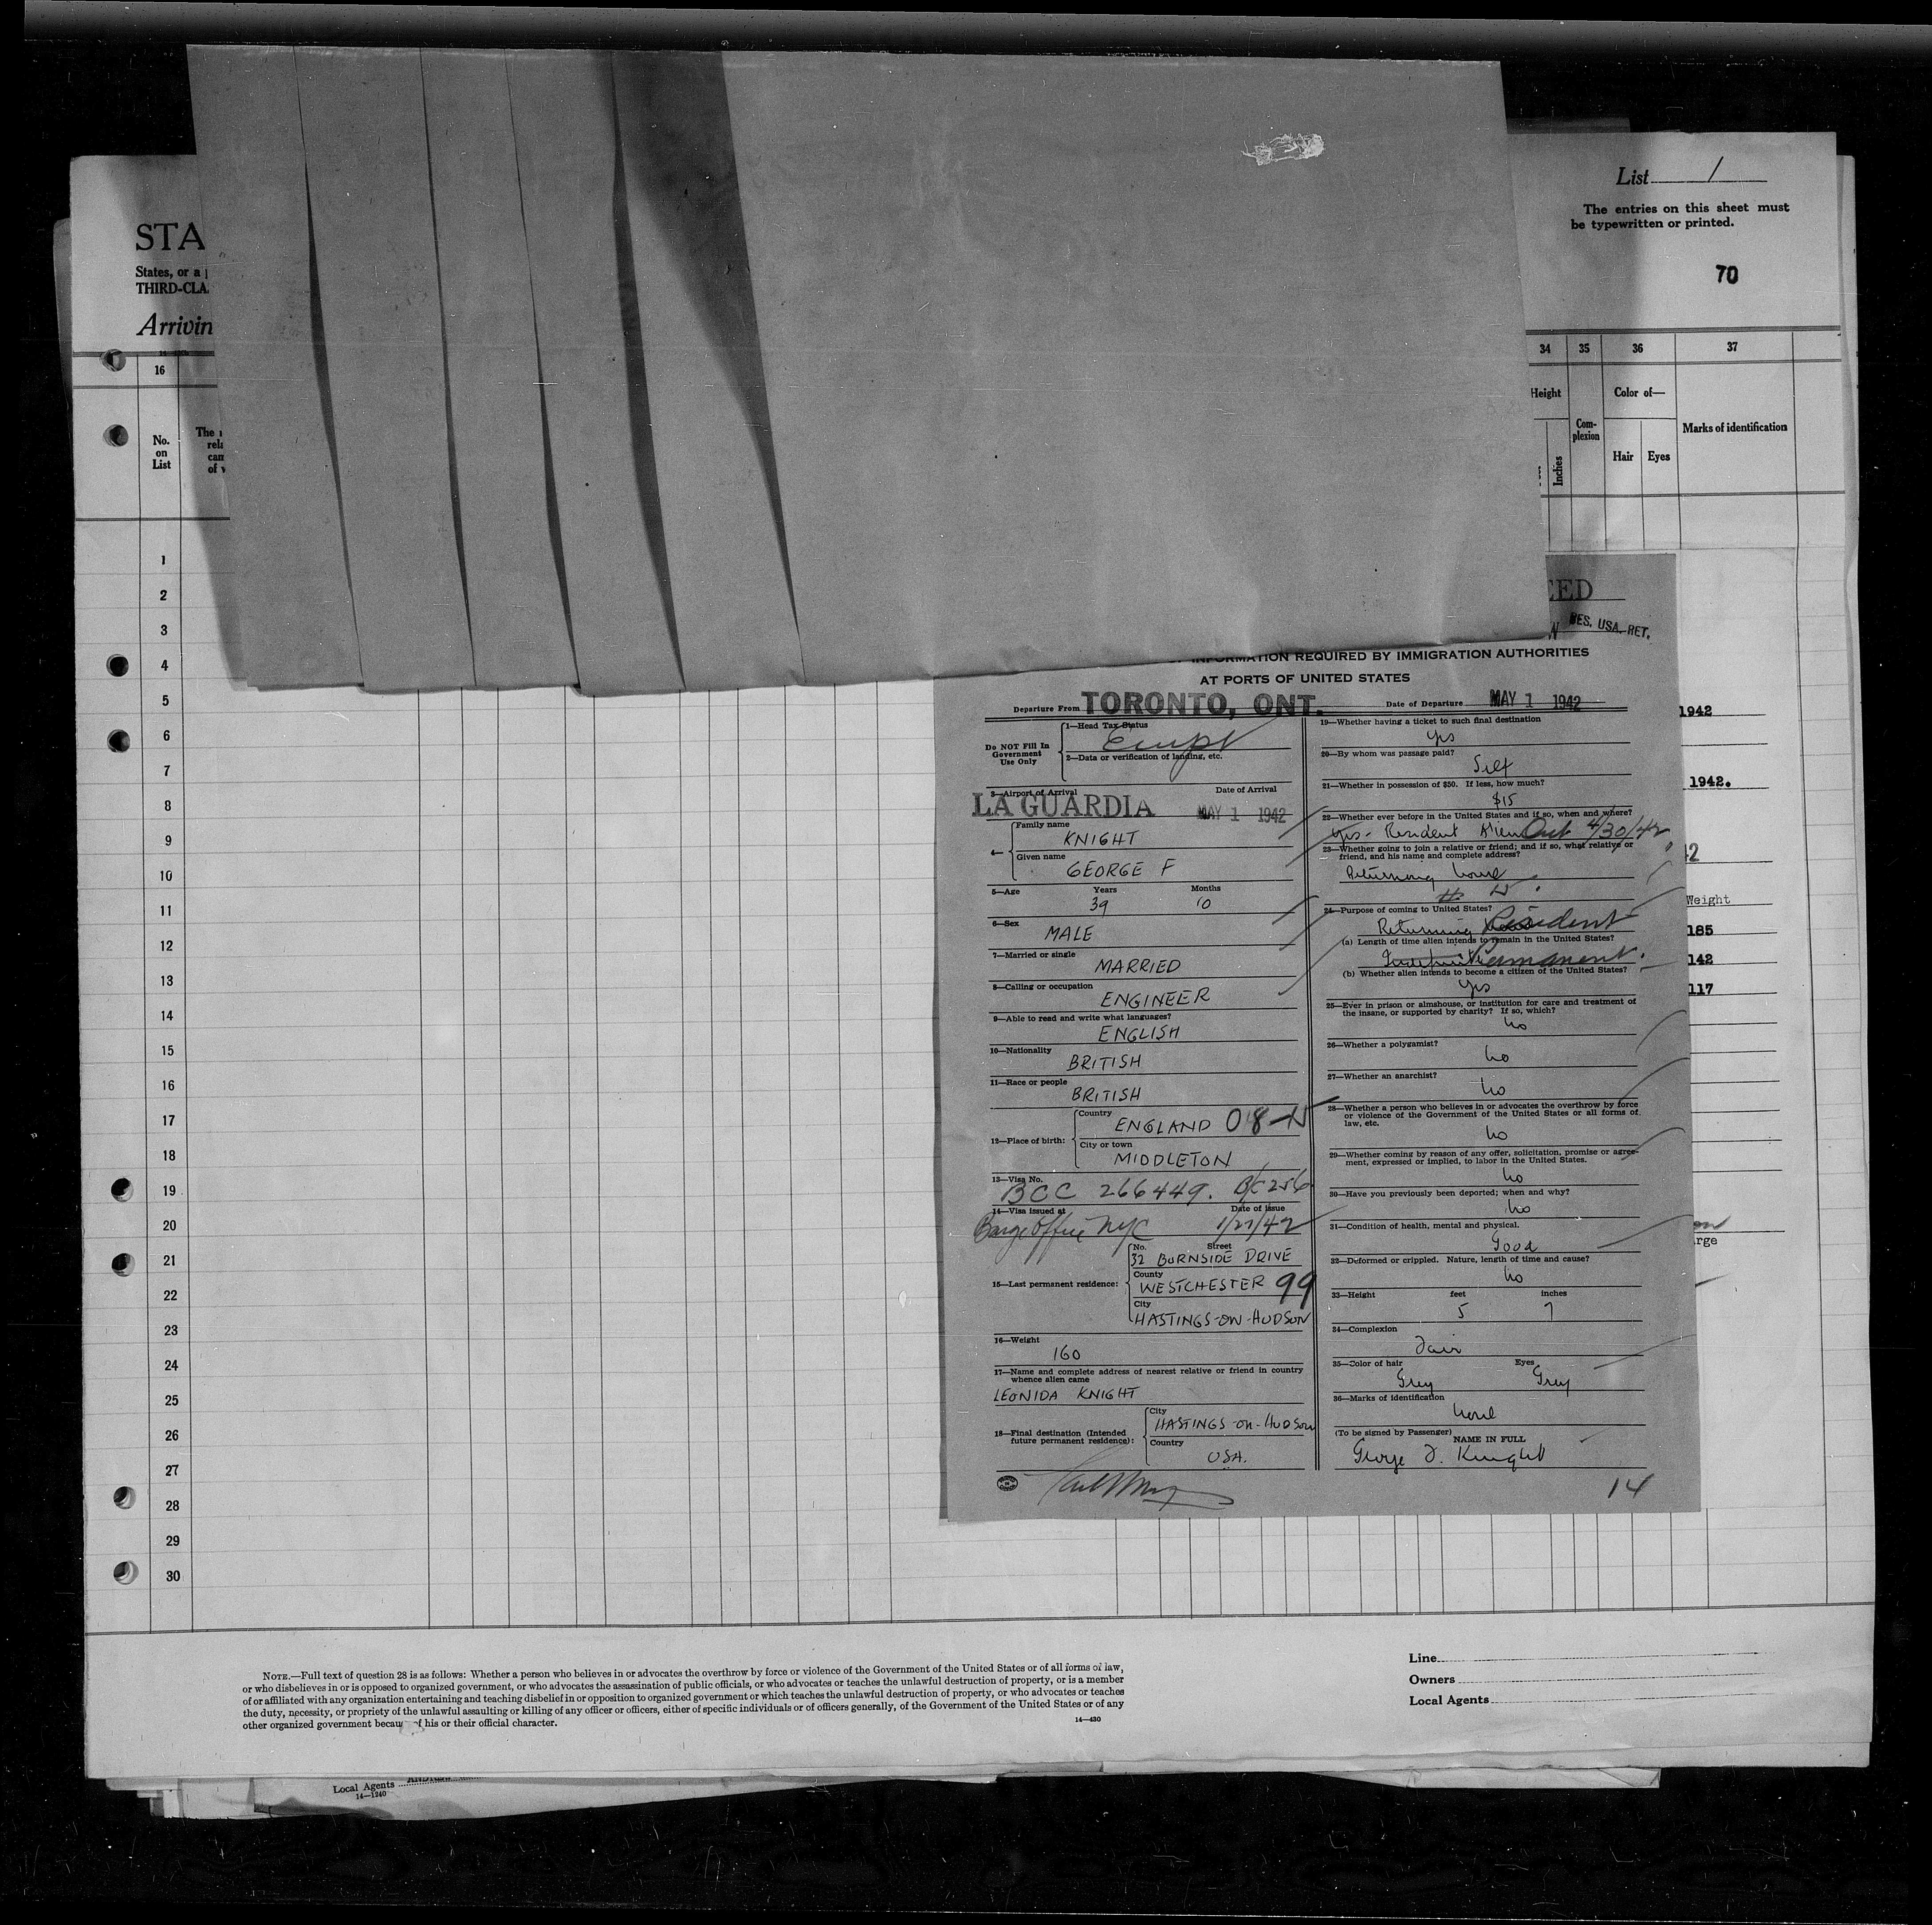 List 1
The entries on this sheet must
be typewritten or printed.
70
STA
States, or a
THIRD-CLA
Arrivin
16
No.
on
List
The
rela
can
of
34 35 36 37
Height
Inches
Com-
plexion
Color of—
Hair Eyes
Marks of identification
1
2
3
4
5
6
7
8
9
10
11
12
13
14
15
16
17
18
19
20
21
22
23
24
25
26
27
28
29
30
RES. USA. RET.
INFORMATION REQUIRED BY IMMIGRATION AUTHORITIES
AT PORTS OF UNITED STATES
Departure From TORONTO, ONT. Date of Departure MAY 1 1942
Do NOT Fill In
Government
Use Only
1—Head Tax Status
2—Data or verification of landing, etc.
3—Airport of Arrival Date of Arrival
LA GUARDIA MAY 1 1942
Family name
KNIGHT
Given name
GEORGE F
5—Age Years Months
39 10
6—Sex
MALE
7—Married or single
MARRIED
8—Calling or occupation
ENGINEER
9—Able to read and write what languages?
ENGLISH
10—Nationality
BRITISH
11—Race or people
BRITISH
12—Place of birth:
Country
ENGLAND 08-N
City or town
MIDDLETON
13—Visa No.
BCC 266449. B/C 256
14—Visa issued at Date of issue
Barge Office NYC 1/27/42
15—Last permanent residence:
No. Street
32 BURNSIDE DRIVE
County
WESTCHESTER 99
City
HASTINGS-ON-HUDSON
16—Weight
160
17—Name and complete address of nearest relative or friend in country
whence alien came
LEONIDA KNIGHT
18—Final destination (Intended
future permanent residence):
City
HASTINGS-ON-HUDSON
Country
USA.
19—Whether having a ticket to such final destination
yes
20—By whom was passage paid?
Self
21—Whether in possession of $50. If less, how much?
$15
22—Whether ever before in the United States and if so, when and where?
Yes - Resident Alien Out 4/30/42
23—Whether going to join a relative or friend; and if so, what relative or
friend, and his name and complete address?
Returning home
24—Purpose of coming to United States?
Returning Resident
(a) Length of time alien intends to remain in the United States?
Permanent.
(b) Whether alien intends to become a citizen of the United States?
yes
25—Ever in prison or almshouse, or institution for care and treatment of
the insane, or supported by charity? If so, which?
no
26—Whether a polygamist?
no
27—Whether an anarchist?
no
28—Whether a person who believes in or advocates the overthrow by force
or violence of the Government of the United States or all forms of
law, etc.
no
29—Whether coming by reason of any offer, solicitation, promise or agree-
ment, expressed or implied, to labor in the United States.
no
30—Have you previously been deported; when and why?
no
31—Condition of health, mental and physical.
Good
32—Deformed or crippled. Nature, length of time and cause?
no
33—Height feet inches
5 7
34—Complexion
Fair
35—Color of hair Eyes
Grey Grey
36—Marks of identification
none
(To be signed by Passenger)
NAME IN FULL
George F. Knight
14
1942
1942.
Weight
185
142
117
NOTE.—Full text of question 28 is as follows: Whether a person who believes in or advocates the overthrow by force or violence of the Government of the United States or of all forms of law,
or who disbelieves in or is opposed to organized government, or who advocates the assassination of public officials, or who advocates or teaches the unlawful destruction of property, or is a member
of or affiliated with any organization entertaining and teaching disbelief in or opposition to organized government or which teaches the unlawful destruction of property, or who advocates or teaches
the duty, necessity, or propriety of the unlawful assaulting or killing of any officer or officers, either of specific individuals or of officers generally, of the Government of the United States or of any
other organized government becau of his or their official character.
14—430
Line
Owners
Local Agents
Local Agents
14—1240